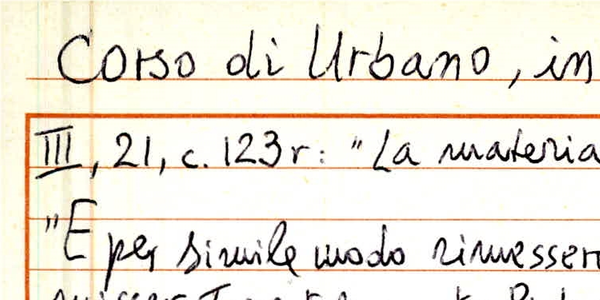 Corso di Urbano, in
III, 21, c. 123r: "La materia
"E per simile modo rimesser